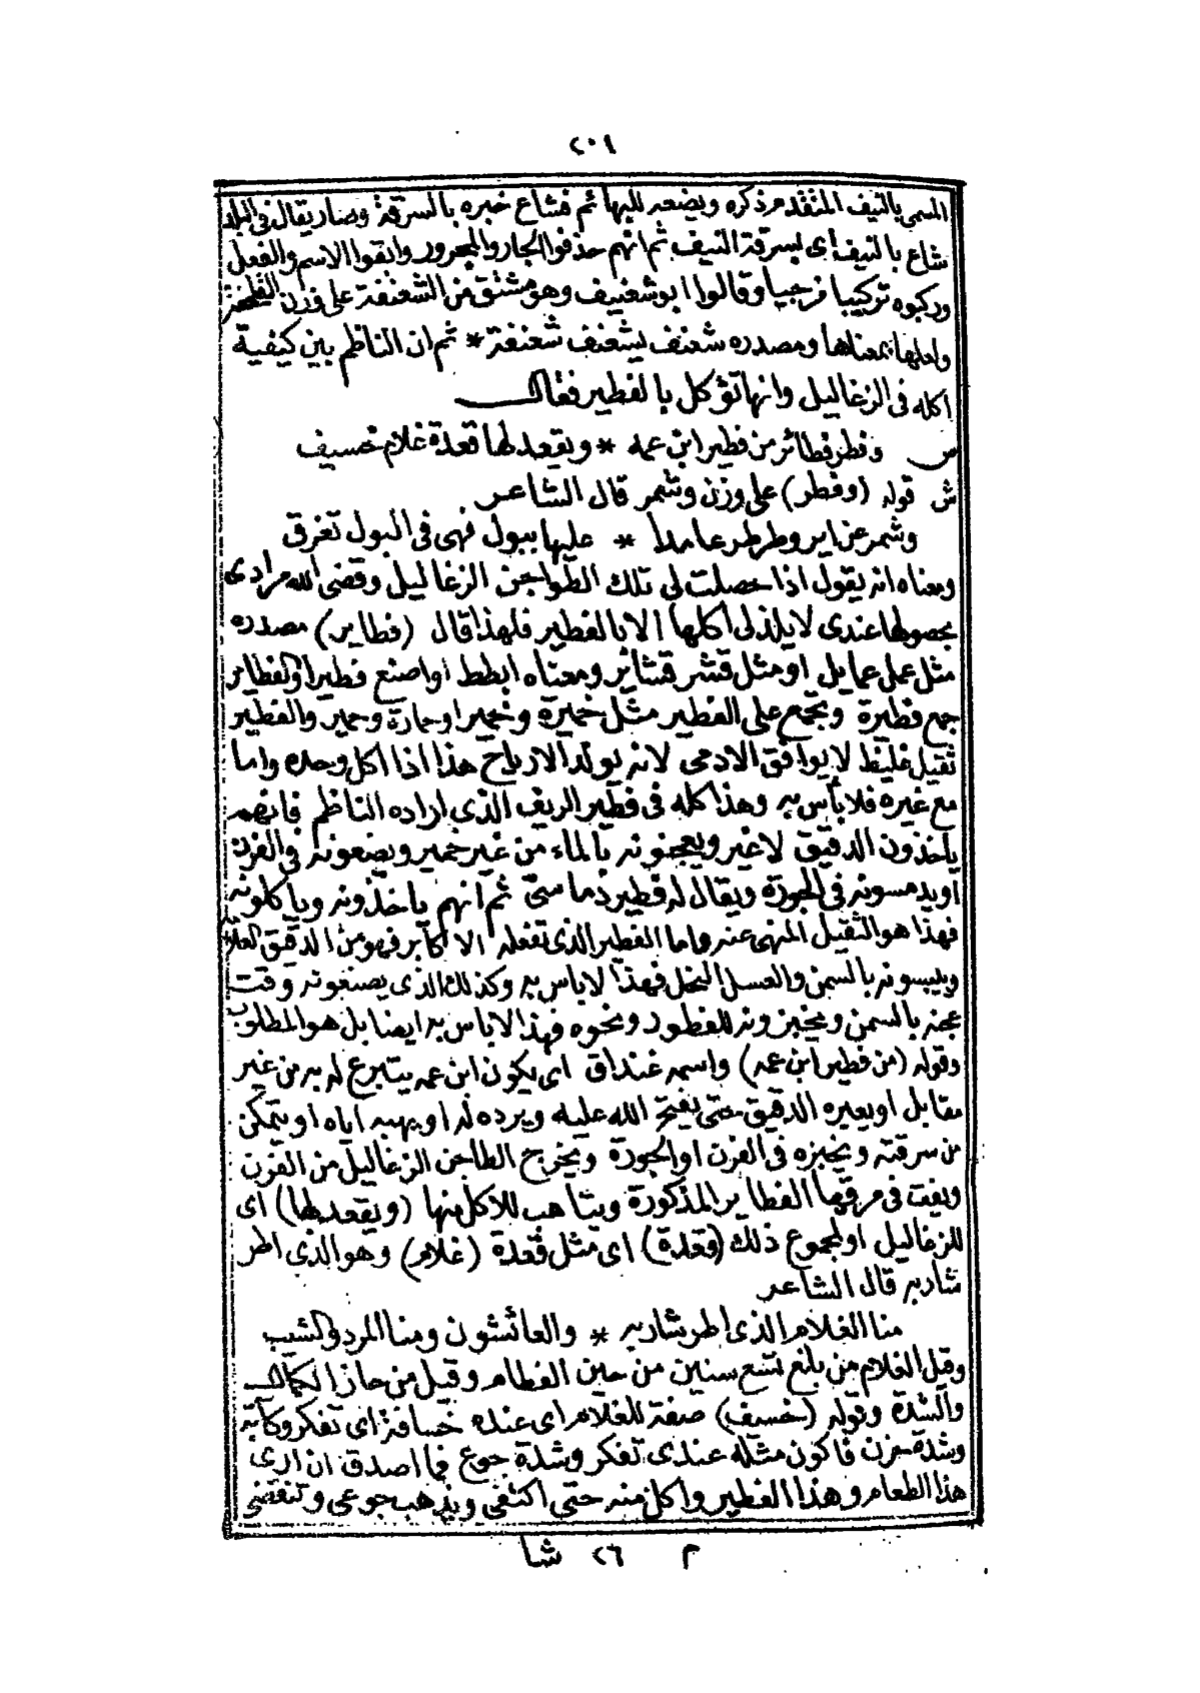 ٢٠١
المسمى بالنيف المتقدم ذكره ويضعه للبهائم فشاع خبره بالسرقة وصار يقال في البلد
شاع بالنيف أى بسرقة النيف ثم انهم حذفوا الجار والمجرور وابقوا الاسم والفعل
وركبوه تركيبا مزجيا وقالوا ابو شغنيف وهو مشتق من الشغنفة على وزن
ولعلها بمعناها ومصدره شغنف يشغنف شغنفة * ثم ان الناظم بين كيفية
اكله فى الزغاليل وانها تؤكل بالفطير فقال
ص وفطر فطائر من فطير ابن عمه * ويقعد لها قعدة غلام خسيف
ش قوله (وفطر) على وزن وشمر قال الشاعر
وشمر عن اير وطرطر عامدا * عليها ببول فهى فى البول تغرق
ومعناه انه يقول اذا حصلت لى تلك الطواجن الزغاليل وقضى الله مرادى
بحصولها عندى لا يلذ لى اكلها الا بالفطير فلهذا قال (فطاير) مصدره
مثل عمل عمايل او مثل قشر قشائر ومعناه ابطط او اصنع فطيرا والفطاير
جمع فطيرة ويجمع على الفطير مثل خميرة وخميرا وحمارة وحمير والفطير
ثقيل غليظ لا يوافق الادمى لانه يولد الارياح هذا اذا اكل وحده واما
مع غيره فلا بأس به وهذا كله فى فطير الريف الذى اراده الناظم فانهم
ياخذون الدقيق لا غير ويعجنونه بالماء من غير خمير ويضعونه فى الفرن
او يدمسونه فى الجورة ويقال له فطير دماسى ثم انهم ياخذونه وياكلونه
فهذا هو الثقيل المنهى عنه واما الفطير الذى تفعله الاكابر فهو من الدقيق العلامة
ويبسونه بالسمن والعسل النحل فهذا لا باس به وكذلك الذى يصنعونه وقت
عجنه بالسمن ويخبزونه للفطور ونحوه فهذا لا باس به ايضا بل هو المطلوب
وقوله (من فطير ابن عمه) واسمه غنداق اى يكون ابن عمه يتبرع له به من غير
مقابل او يعيره الدقيق حتى يفتح الله عليه ويرده له او يهبه اياه او يتمكن
من سرقته ويخبزه فى الفرن او الجورة ويخرج الطاجن الزغاليل من الفرن
ويفت فى مرقها الفطاير المذكورة ويتاهب للاكل منها (ويقعد لها) اى
للزغاليل او لمجموع ذلك (قعدة) اى مثل قعدة (غلام) وهو الذى اطر
شاربه قال الشاعر
منا الغلام الذى اطر شاربه * والعائشون ومنا المرد والشيب
وقيل الغلام من بلغ تسع سنين من حين الفطام وقيل من حاز الكمال
والشدة وقوله (خسيف) صفة للغلام اى عنده خسافة اى تفكر وكآبة
وشدة حزن فاكون مثله عندى تفكر وشدة جوع فما اصدق ان ارى
هذا الطعام وهذا الفطير واكل منه حتى اكتفى ويذهب جوعى وتنقضى
م ٢٦ شا